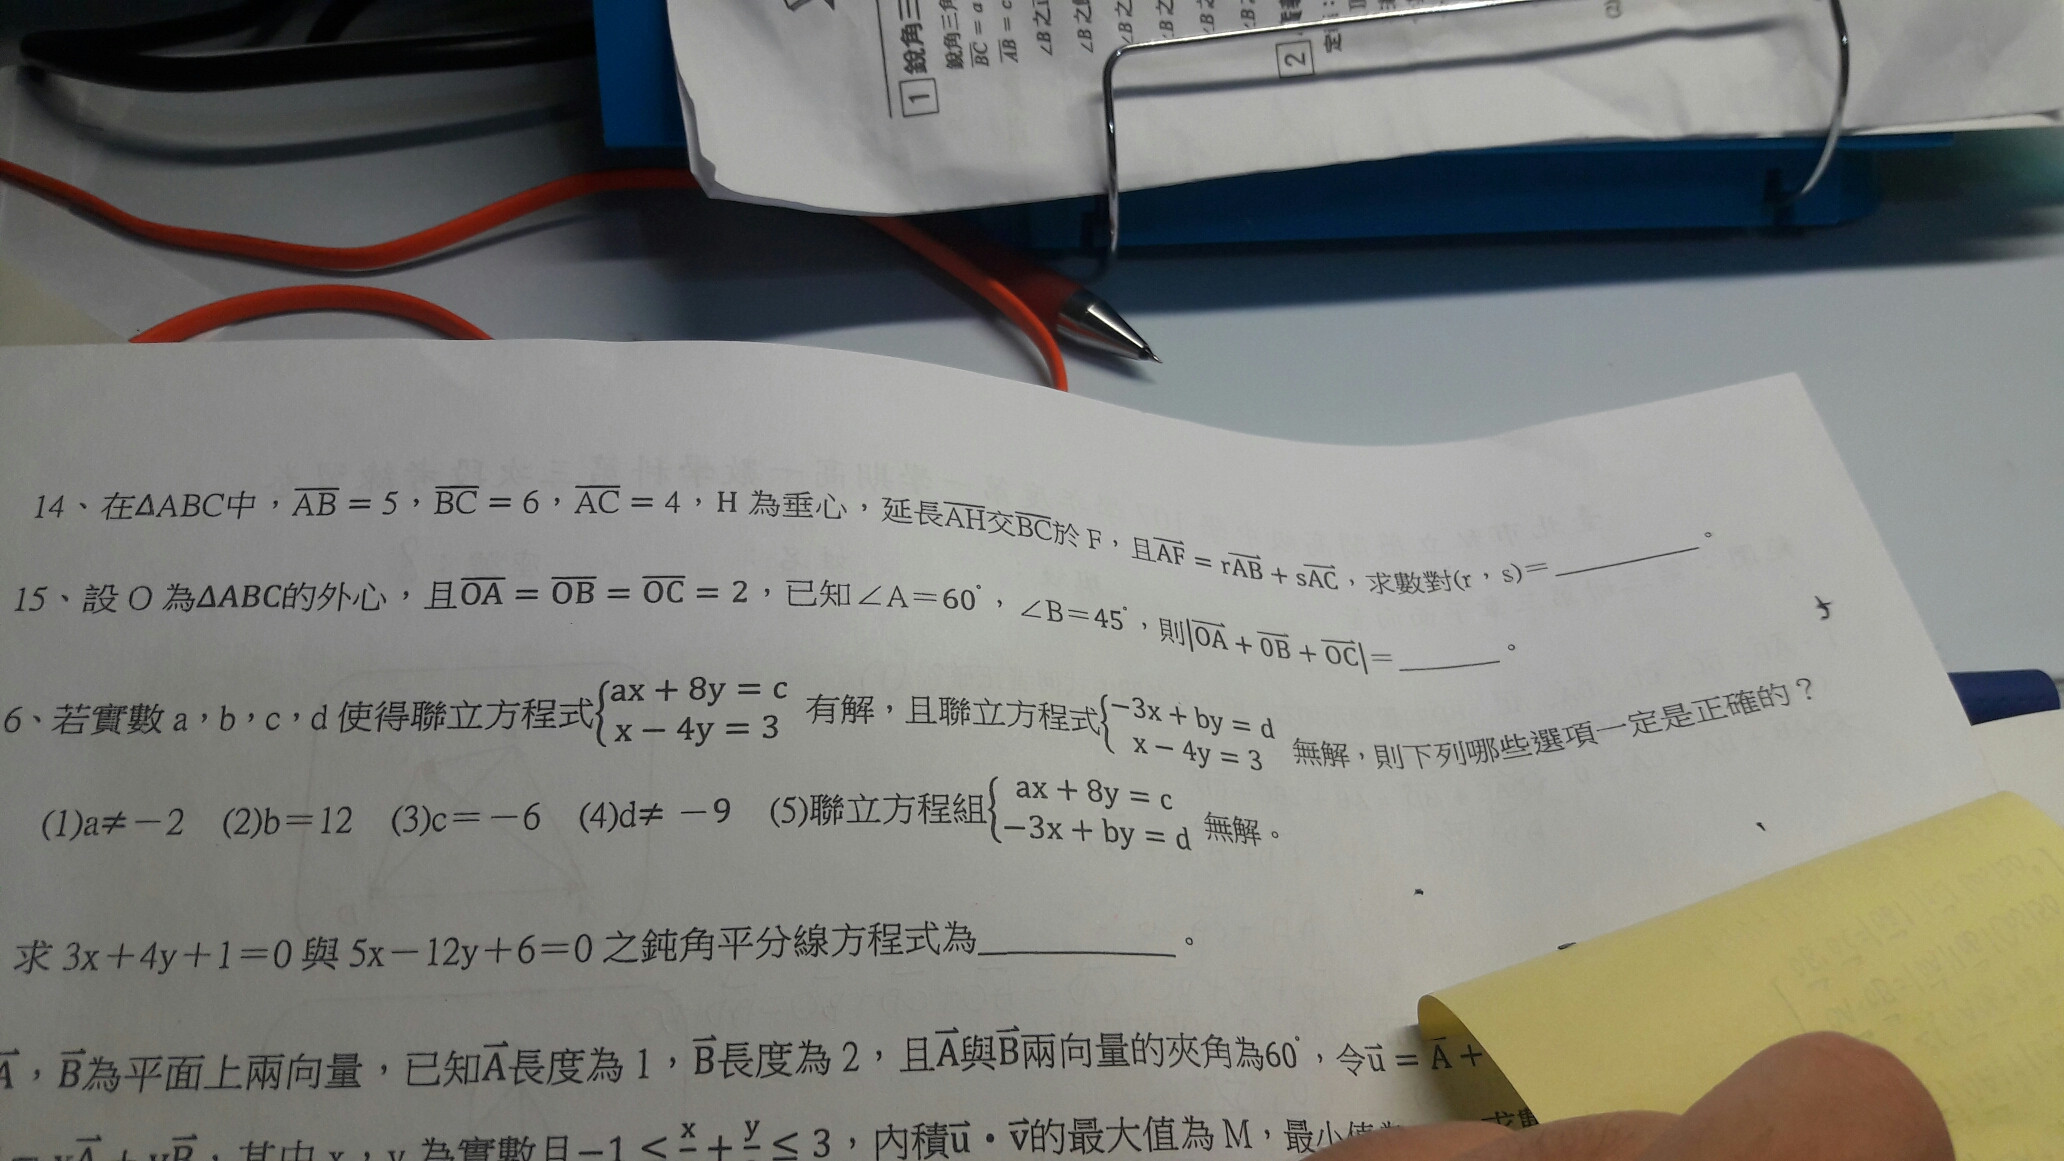 1 銳角三
銳角三角
BC = a
AB = c
∠B之正
∠B之
∠B之
∠B之
∠B之
2
定
14、在ΔABC中，AB = 5，BC = 6，AC = 4，H 為垂心，延長AH交BC於 F，且AF = rAB + sAC，求數對(r，s)=________。
15、設 O 為ΔABC的外心，且OA = OB = OC = 2，已知∠A=60°，∠B=45°，則|OA + OB + OC|=______。
6、若實數 a，b，c，d 使得聯立方程式{ax + 8y = c x − 4y = 3 有解，且聯立方程式{−3x + by = d x − 4y = 3 無解，則下列哪些選項一定是正確的？
(1)a≠−2 (2)b=12 (3)c=−6 (4)d≠ −9 (5)聯立方程組{ax + 8y = c −3x + by = d 無解。
求 3x+4y+1=0 與 5x−12y+6=0 之鈍角平分線方程式為__________。
A，B為平面上兩向量，已知A長度為 1，B長度為 2，且A與B兩向量的夾角為60°，令u = A +
= xA + yB，其中 x，y 為實數且−1 ≤ x + y ≤ 3，內積u・v的最大值為 M，最小值